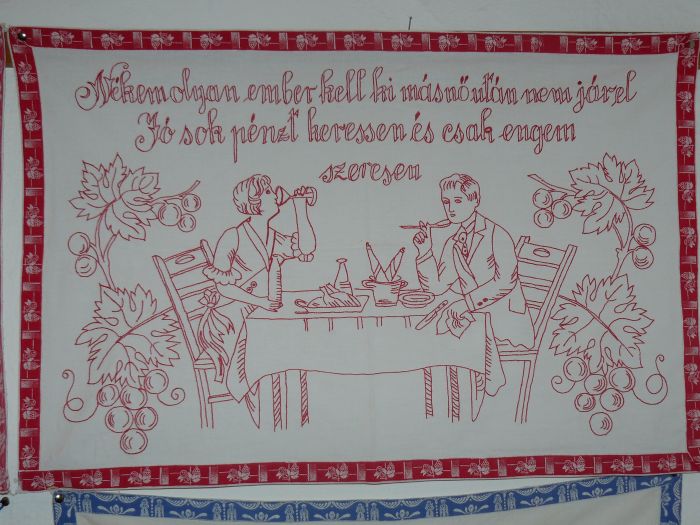 Nékem olyan ember kell ki másnő után nem jár el
Jó sok pénzt keressen és csak engem
szeresen